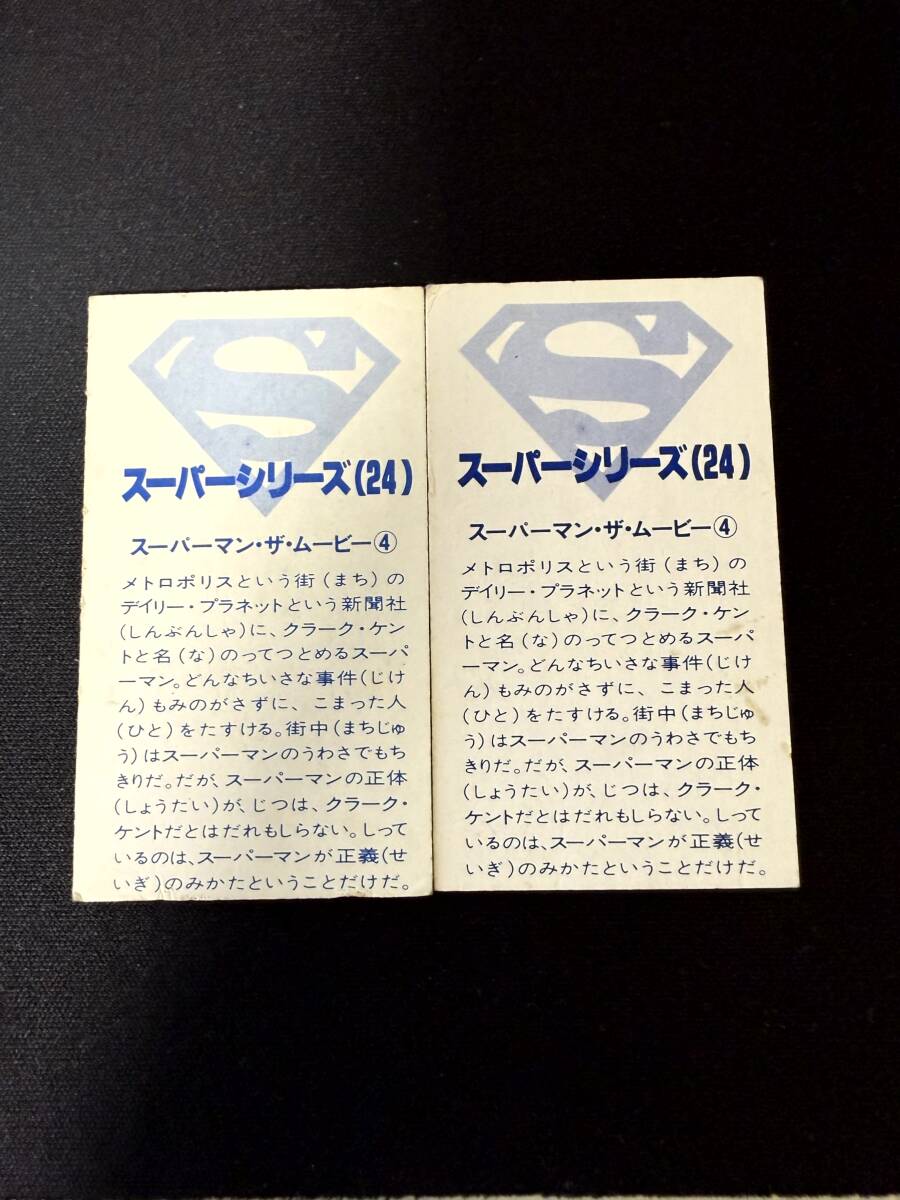 S
スーパーシリーズ(24)
スーパーマン・ザ・ムービー④
メトロポリスという街(まち)の
デイリー・プラネットという新聞社
(しんぶんしゃ)に、クラーク・ケン
トと名(な)のってつとめるスーパ
ーマン。どんなちいさな事件(じけ
ん)もみのがさずに、こまった人
(ひと)をたすける。街中(まちじゅ
う)はスーパーマンのうわさでもち
きりだ。だが、スーパーマンの正体
(しょうたい)が、じつは、クラーク・
ケントだとはだれもしらない。しって
いるのは、スーパーマンが正義(せ
いぎ)のみかたということだけだ。
S
スーパーシリーズ(24)
スーパーマン・ザ・ムービー④
メトロポリスという街(まち)の
デイリー・プラネットという新聞社
(しんぶんしゃ)に、クラーク・ケン
トと名(な)のってつとめるスーパ
ーマン。どんなちいさな事件(じけ
ん)もみのがさずに、こまった人
(ひと)をたすける。街中(まちじゅ
う)はスーパーマンのうわさでもち
きりだ。だが、スーパーマンの正体
(しょうたい)が、じつは、クラーク・
ケントだとはだれもしらない。しって
いるのは、スーパーマンが正義(せ
いぎ)のみかたということだけだ。